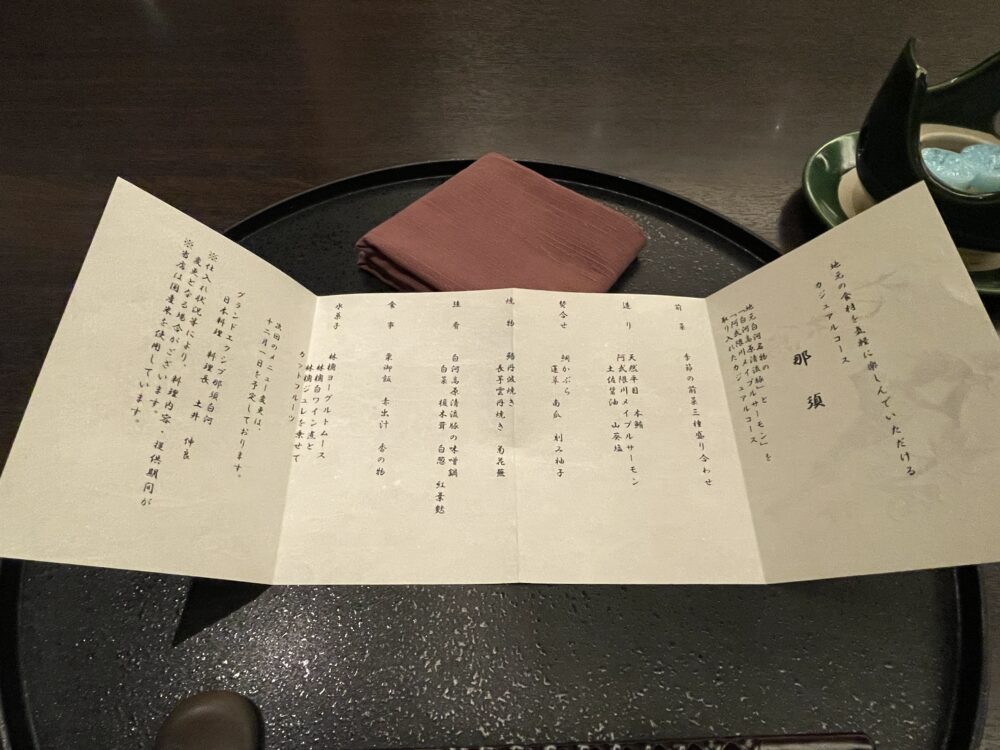 地元の食材を気軽に楽しんでいただける
カジュアルコース
那須
地元白河名物の
「白河高原清流豚」と
「阿武隈川メイプルサーモン」を
取り入れたカジュアルコース
前菜
季節の前菜三種盛り合わせ
造り
天然平目 本鮪
阿武隈川メイプルサーモン
土佐醤油 山葵塩
焚合せ
鯛かぶら
蓮草 南瓜 刻み柚子
焼物
鰆丹波焼き
長芋雲丹焼き 菊花蕪
進肴
白河高原清流豚の味噌鍋
白菜 榎木茸 白葱 紅葉麩
食事
栗御飯 赤出汁 香の物
水菓子
林檎ヨーグルトムース
林檎白ワイン煮と
林檎ジュレを乗せて
カットフルーツ
次回のメニュー変更は、
十二月一日を予定しております。
グランドエクシブ那須白河
日本料理 料理長 土井 伸良
※仕入れ状況等により、料理内容・提供期間が
変更となる場合がございます。
※当店は国産米を使用しています。